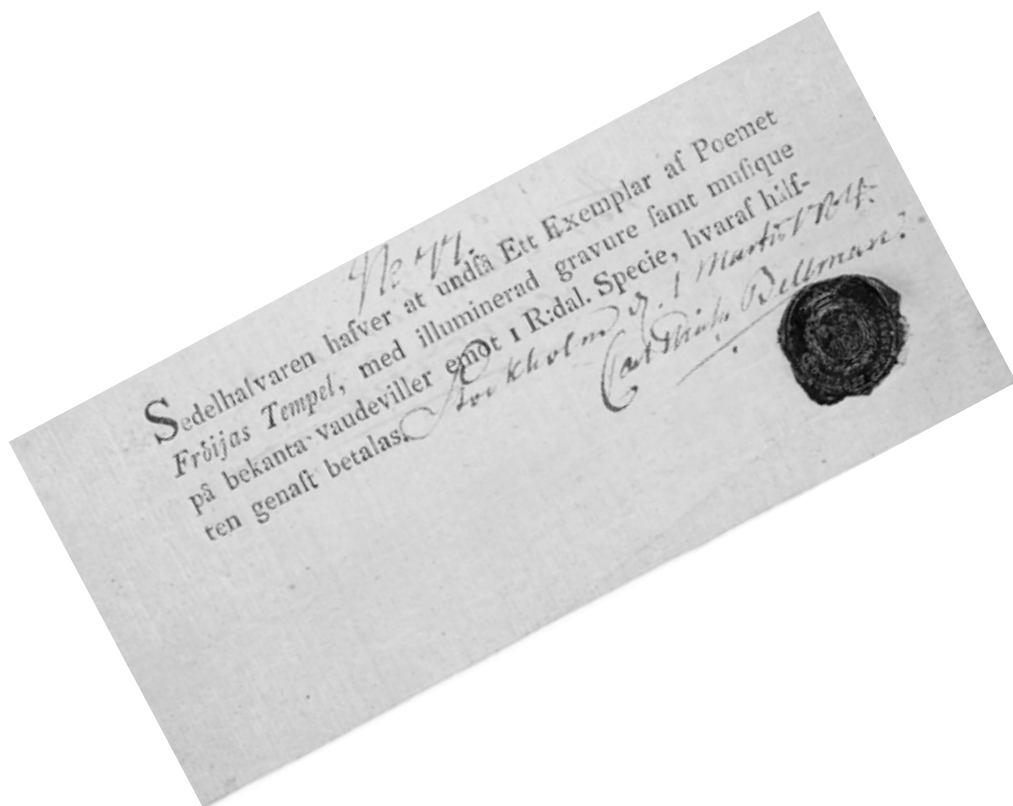 No 77.
Sedelhafvaren hafver at undfå Ett Exemplar af Poemet
Fröijas Tempel, med illuminerad gravure ſamt muſique
på bekanta vaudeviller emot 1 R:dal. Specie, hvaraf hälf-
ten genaſt betalas. Stockholm d. 1 Martii
Carl Mich: Bellman.